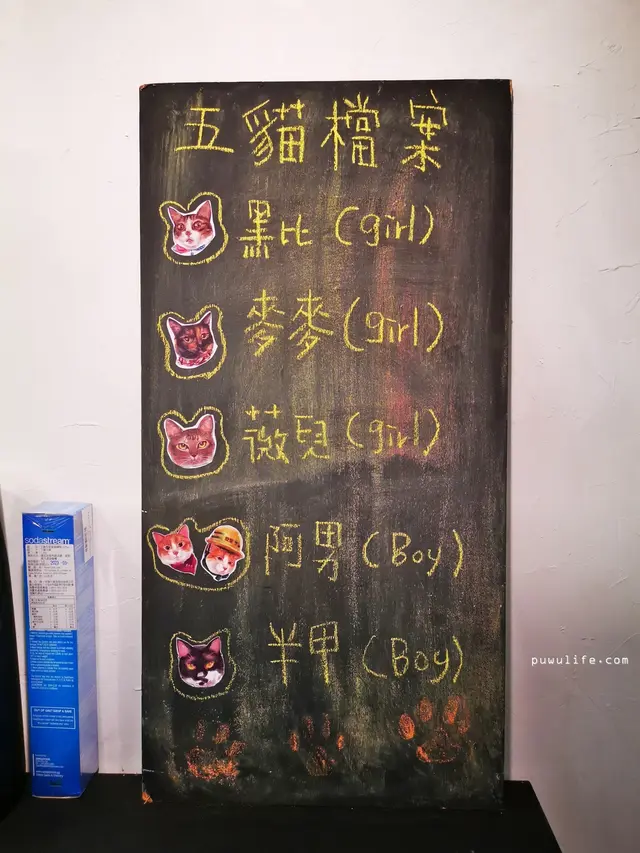 五貓檔案
黑比 (girl)
麥麥 (girl)
薇兒 (girl)
阿男 (Boy)
半甲 (Boy)
sodastream
puwulife.com